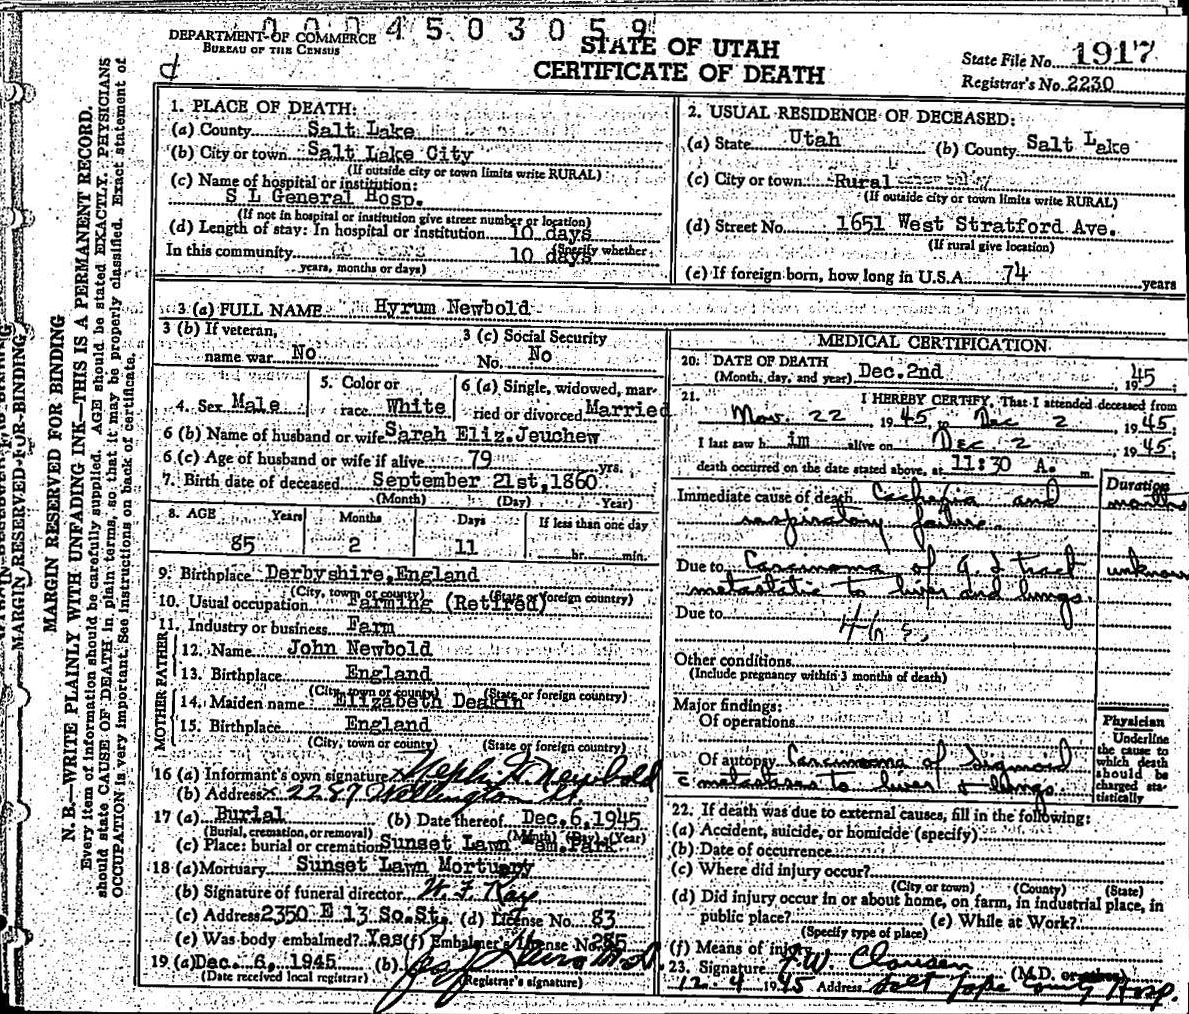 0004503059
DEPARTMENT OF COMMERCE
BUREAU OF THE CENSUS
STATE OF UTAH
CERTIFICATE OF DEATH
State File No. 1917
Registrar's No. 2230
MARGIN RESERVED FOR BINDING
MARGIN RESERVED FOR BINDING
N. B.—WRITE PLAINLY WITH UNFADING INK—THIS IS A PERMANENT RECORD.
Every item of information should be carefully supplied. AGE should be stated EXACTLY. PHYSICIANS
should state CAUSE OF DEATH in plain terms, so that it may be properly classified. Exact statement of
OCCUPATION is very important. See instructions on back of certificate.
1. PLACE OF DEATH:
(a) County Salt Lake
(b) City or town Salt Lake City
(If outside city or town limits write RURAL)
(c) Name of hospital or institution:
S L General Hosp.
(If not in hospital or institution give street number or location)
(d) Length of stay: In hospital or institution 10 days
(Specify whether
In this community 10 days
years, months or days)
2. USUAL RESIDENCE OF DECEASED:
(a) State Utah (b) County Salt Lake
(c) City or town Rural
(If outside city or town limits write RURAL)
(d) Street No. 1651 West Stratford Ave.
(If rural give location)
(e) If foreign born, how long in U.S.A. 74 years
3 (a) FULL NAME Hyrum Newbold
3 (b) If veteran,
name war No
3 (c) Social Security
No. No
4. Sex Male
5. Color or
race White
6 (a) Single, widowed, mar-
ried or divorced Married
6 (b) Name of husband or wife Sarah Eliz. Jeuchew
6 (c) Age of husband or wife if alive 79 yrs.
7. Birth date of deceased September 21st, 1860
(Month) (Day) Year)
8. AGE Years Months Days If less than one day
85 2 11 hr. min.
9. Birthplace Derbyshire, England
(City, town or county) (State or foreign country)
10. Usual occupation Farming (Retired)
11. Industry or business Farm
FATHER
12. Name John Newbold
13. Birthplace England
(City, town or county) (State or foreign country)
MOTHER
14. Maiden name Elizabeth Deakin
15. Birthplace England
(City, town or county) (State or foreign country)
16 (a) Informant's own signature Newbold
(b) Address 2287 Wellington St.
17 (a) Burial (b) Date thereof Dec. 6, 1945
(Burial, cremation, or removal) (Month) (Day) (Year)
(c) Place: burial or cremation Sunset Lawn Mem. Park
18 (a) Mortuary Sunset Lawn Mortuary
(b) Signature of funeral director
(c) Address 2350 E 13 So. St. (d) License No. 83
(e) Was body embalmed? Yes (f) Embalmer's License No. 285
19 (a) Dec. 6, 1945 (b)
(Date received local registrar) (Registrar's signature)
MEDICAL CERTIFICATION
20. DATE OF DEATH
(Month, day, and year) Dec. 2nd, 1945
21. I HEREBY CERTIFY, That I attended deceased from
Nov. 22 1945, to Dec 2, 1945;
I last saw h im alive on Dec 2 1945;
death occurred on the date stated above, at 11:30 A. m.
Duration
Immediate cause of death Cachexia and months
respiratory failure
Due to Carcinoma of G.I tract unknown
metastatic to liver and lungs
Due to
Other conditions
(Include pregnancy within 3 months of death)
Major findings:
Of operations
Of autopsy Carcinoma of sigmoid
c̄ metastases to liver & lungs.
Physician
Underline
the cause to
which death
should be
charged sta-
tistically
22. If death was due to external causes, fill in the following:
(a) Accident, suicide, or homicide (specify)
(b) Date of occurrence
(c) Where did injury occur?
(City or town) (County) (State)
(d) Did injury occur in or about home, on farm, in industrial place, in
public place? (e) While at Work?
(Specify type of place)
(f) Means of injury
23. Signature W. Clausen (M.D. or other)
12-4 1945 Address Salt Lake County Hosp.